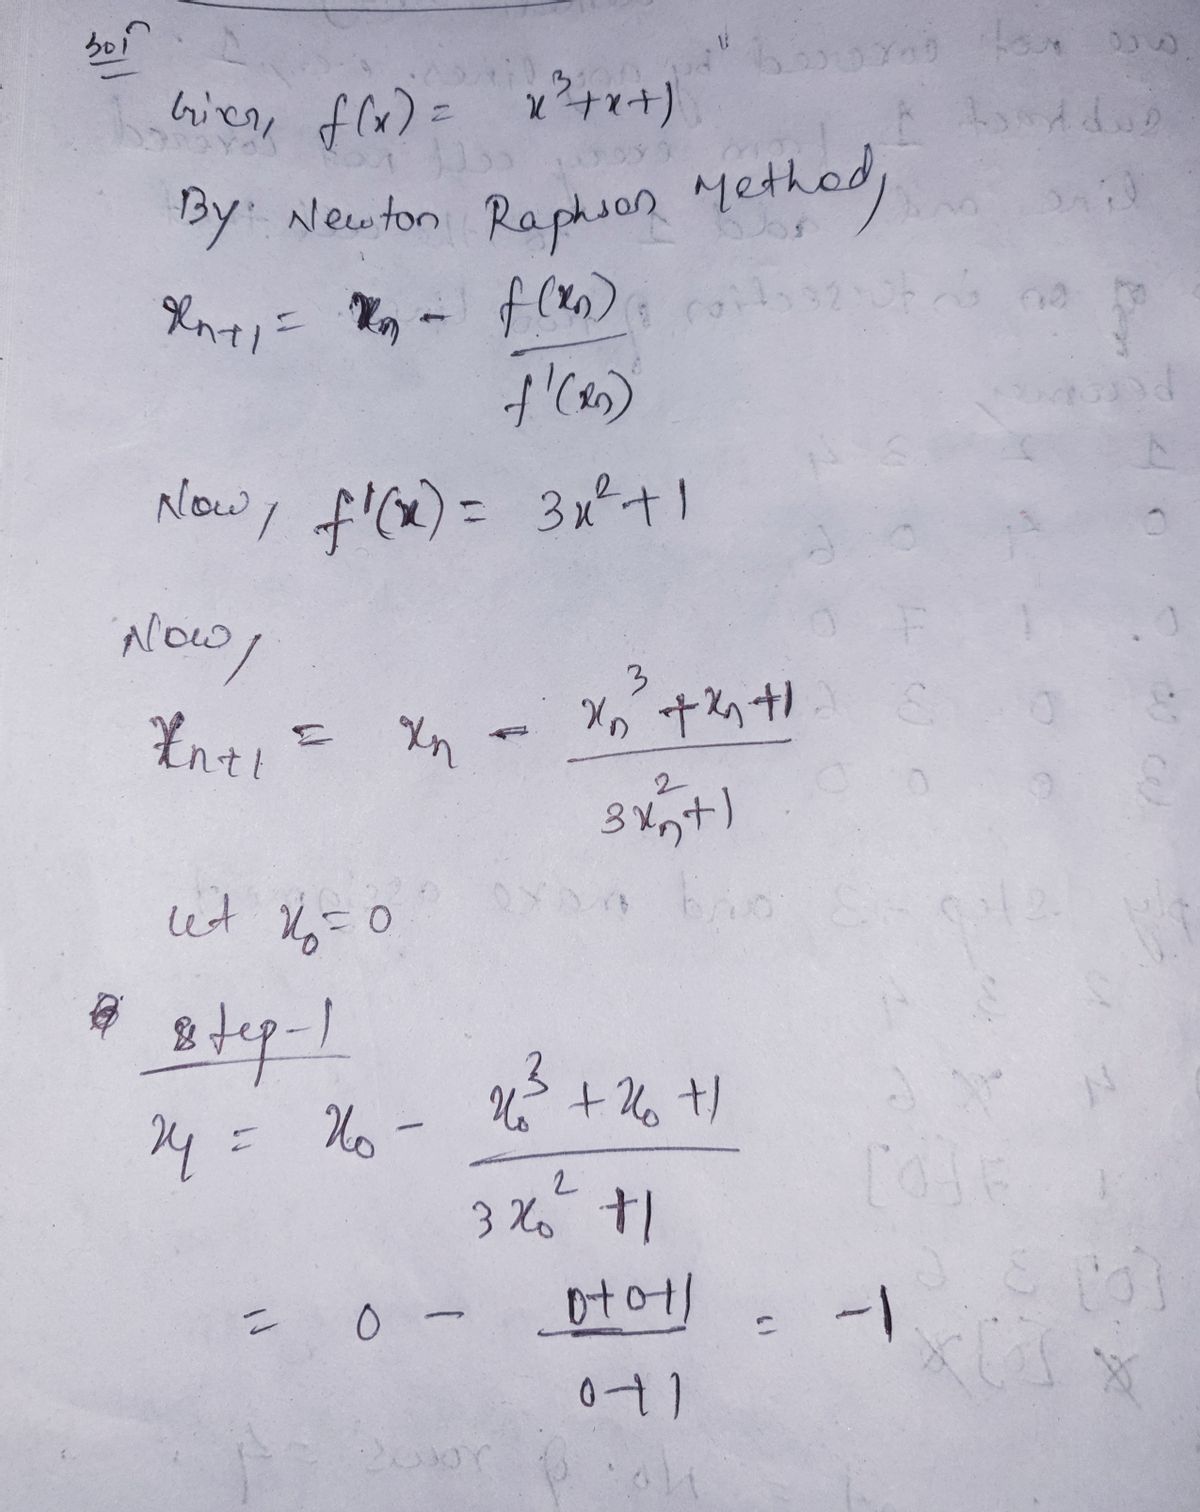 Sol^n
Given, f(x) = x³+x+1
By Newton Raphson Method,
x_{n+1} = x_n - f(x_n)
f'(x_n)
Now, f'(x) = 3x²+1
Now,
x_{n+1} = x_n - x_n³+x_n+1
3x_n²+1
let x_0=0
step-1
x_1 = x_0 - x_0³+x_0+1
3x_0²+1
= 0 - 0+0+1 = -1
0+1